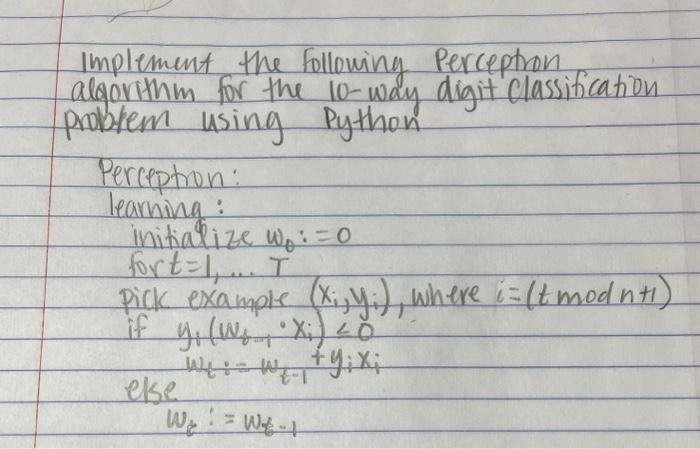 Implement the following Perceptron
algorithm for the 10-way digit classification
problem using Python
Perceptron:
learning:
initialize w₀ := 0
for t=1, ... T
pick example (xᵢ, yᵢ), where i=(t mod n+1)
if yᵢ(wₜ₋₁ · xᵢ) < 0
wₜ := wₜ₋₁ + yᵢxᵢ
else
wₜ := wₜ₋₁